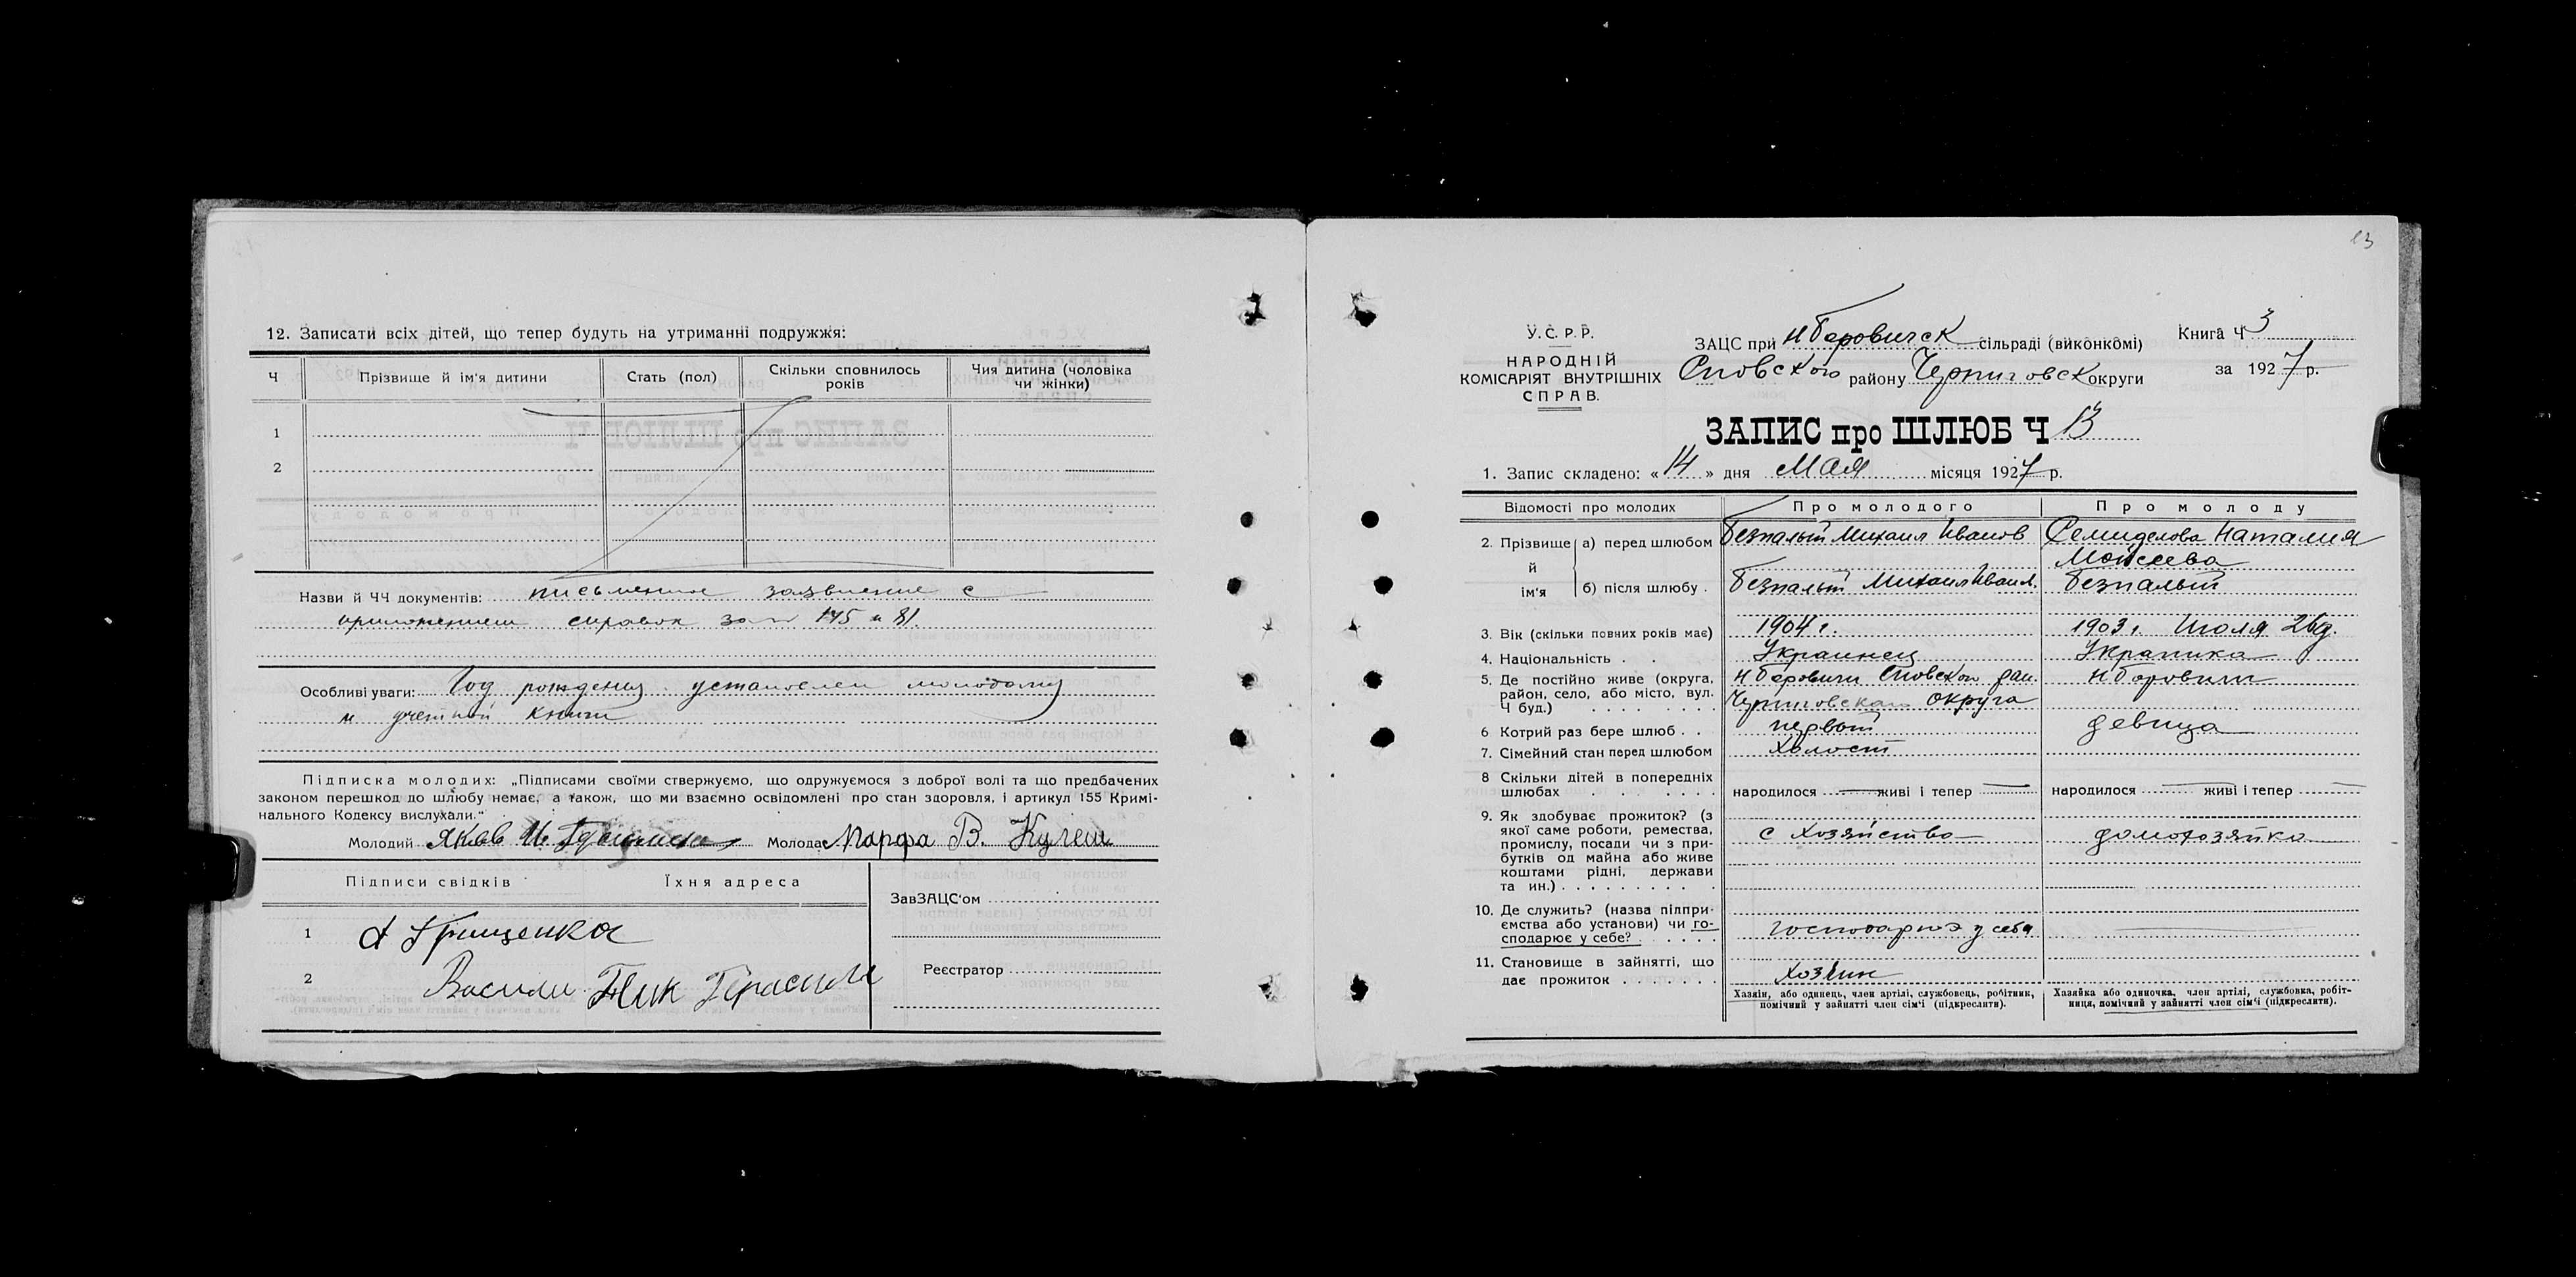 12. Записати всіх дітей, що тепер будуть на утриманні подружжя:
Ч Прізвище й ім'я дитини Стать (пол) Скільки сповнилось років Чия дитина (чоловіка чи жінки)
1
2
Назви й ЧЧ документів: письменное заявление с
приложением справок за № 145 и 81.
Особливі уваги: Год рождения установлен молодому
и учетной книги
Підписка молодих: „Підписами своїми стверджуємо, що одружуємося з доброї волі та що предбачених
законом перешкод до шлюбу немає, а також, що ми взаємно освідомлені про стан здоровля, і артикул 155 Кримі-
нального Кодексу вислухали."
Молодий Яков И. Молода Марфа В. Кулеш
Підписи свідків Їхня адреса
ЗавЗАЦС'ом
1 Грищенко
2 Василь
Реєстратор
13
У.С.Р.Р.
НАРОДНІЙ
КОМІСАРІЯТ ВНУТРІШНІХ
СПРАВ.
ЗАЦС при Н Боровичск сільраді (виконкомі)
району Черниговск округи
Книга Ч 3
за 1927 р.
ЗАПИС про ШЛЮБ Ч 13
1. Запис складено: « 14 » дня мая місяця 1927 р.
Відомості про молодих Про молодого Про молоду
2. Прізвище й ім'я а) перед шлюбом Безпалый Михаил Иванов Семиделова Наталия
Моисеева
б) після шлюбу . Безпалый Михаил Иван. Безпалый
3. Вік (скільки повних років має) 1904 г. 1903 г. Июля 26 д.
4. Національність . . Украинец Украинка
5. Де постійно живе (округа, район, село, або місто, вул. Ч буд.) Н Боровичи рай. Н Боровичи
Черниговская округа
6 Котрий раз бере шлюб . . первый девица
7. Сімейний стан перед шлюбом холост
8 Скільки дітей в попередніх шлюбах народилося живі і тепер народилося живі і тепер
9. Як здобуває прожиток? (з якої саме роботи, ремества, промислу, посади чи з прибутків од майна або живе коштами рідні, держави та ин.) с хозяйства домохозяйка
10. Де служить? (назва підприємства або установи) чи господарює у себе? господарює у себя
11. Становище в зайнятті, що дає прожиток хозяин
Хазяін, або одинець, член артілі, службовець, робітник, помічний у зайнятті член сім'ї (підкреслити).
Хазяйка або одиночка, член артілі, службовка, робітниця, помічний у зайнятті член сім'ї (підкреслити).